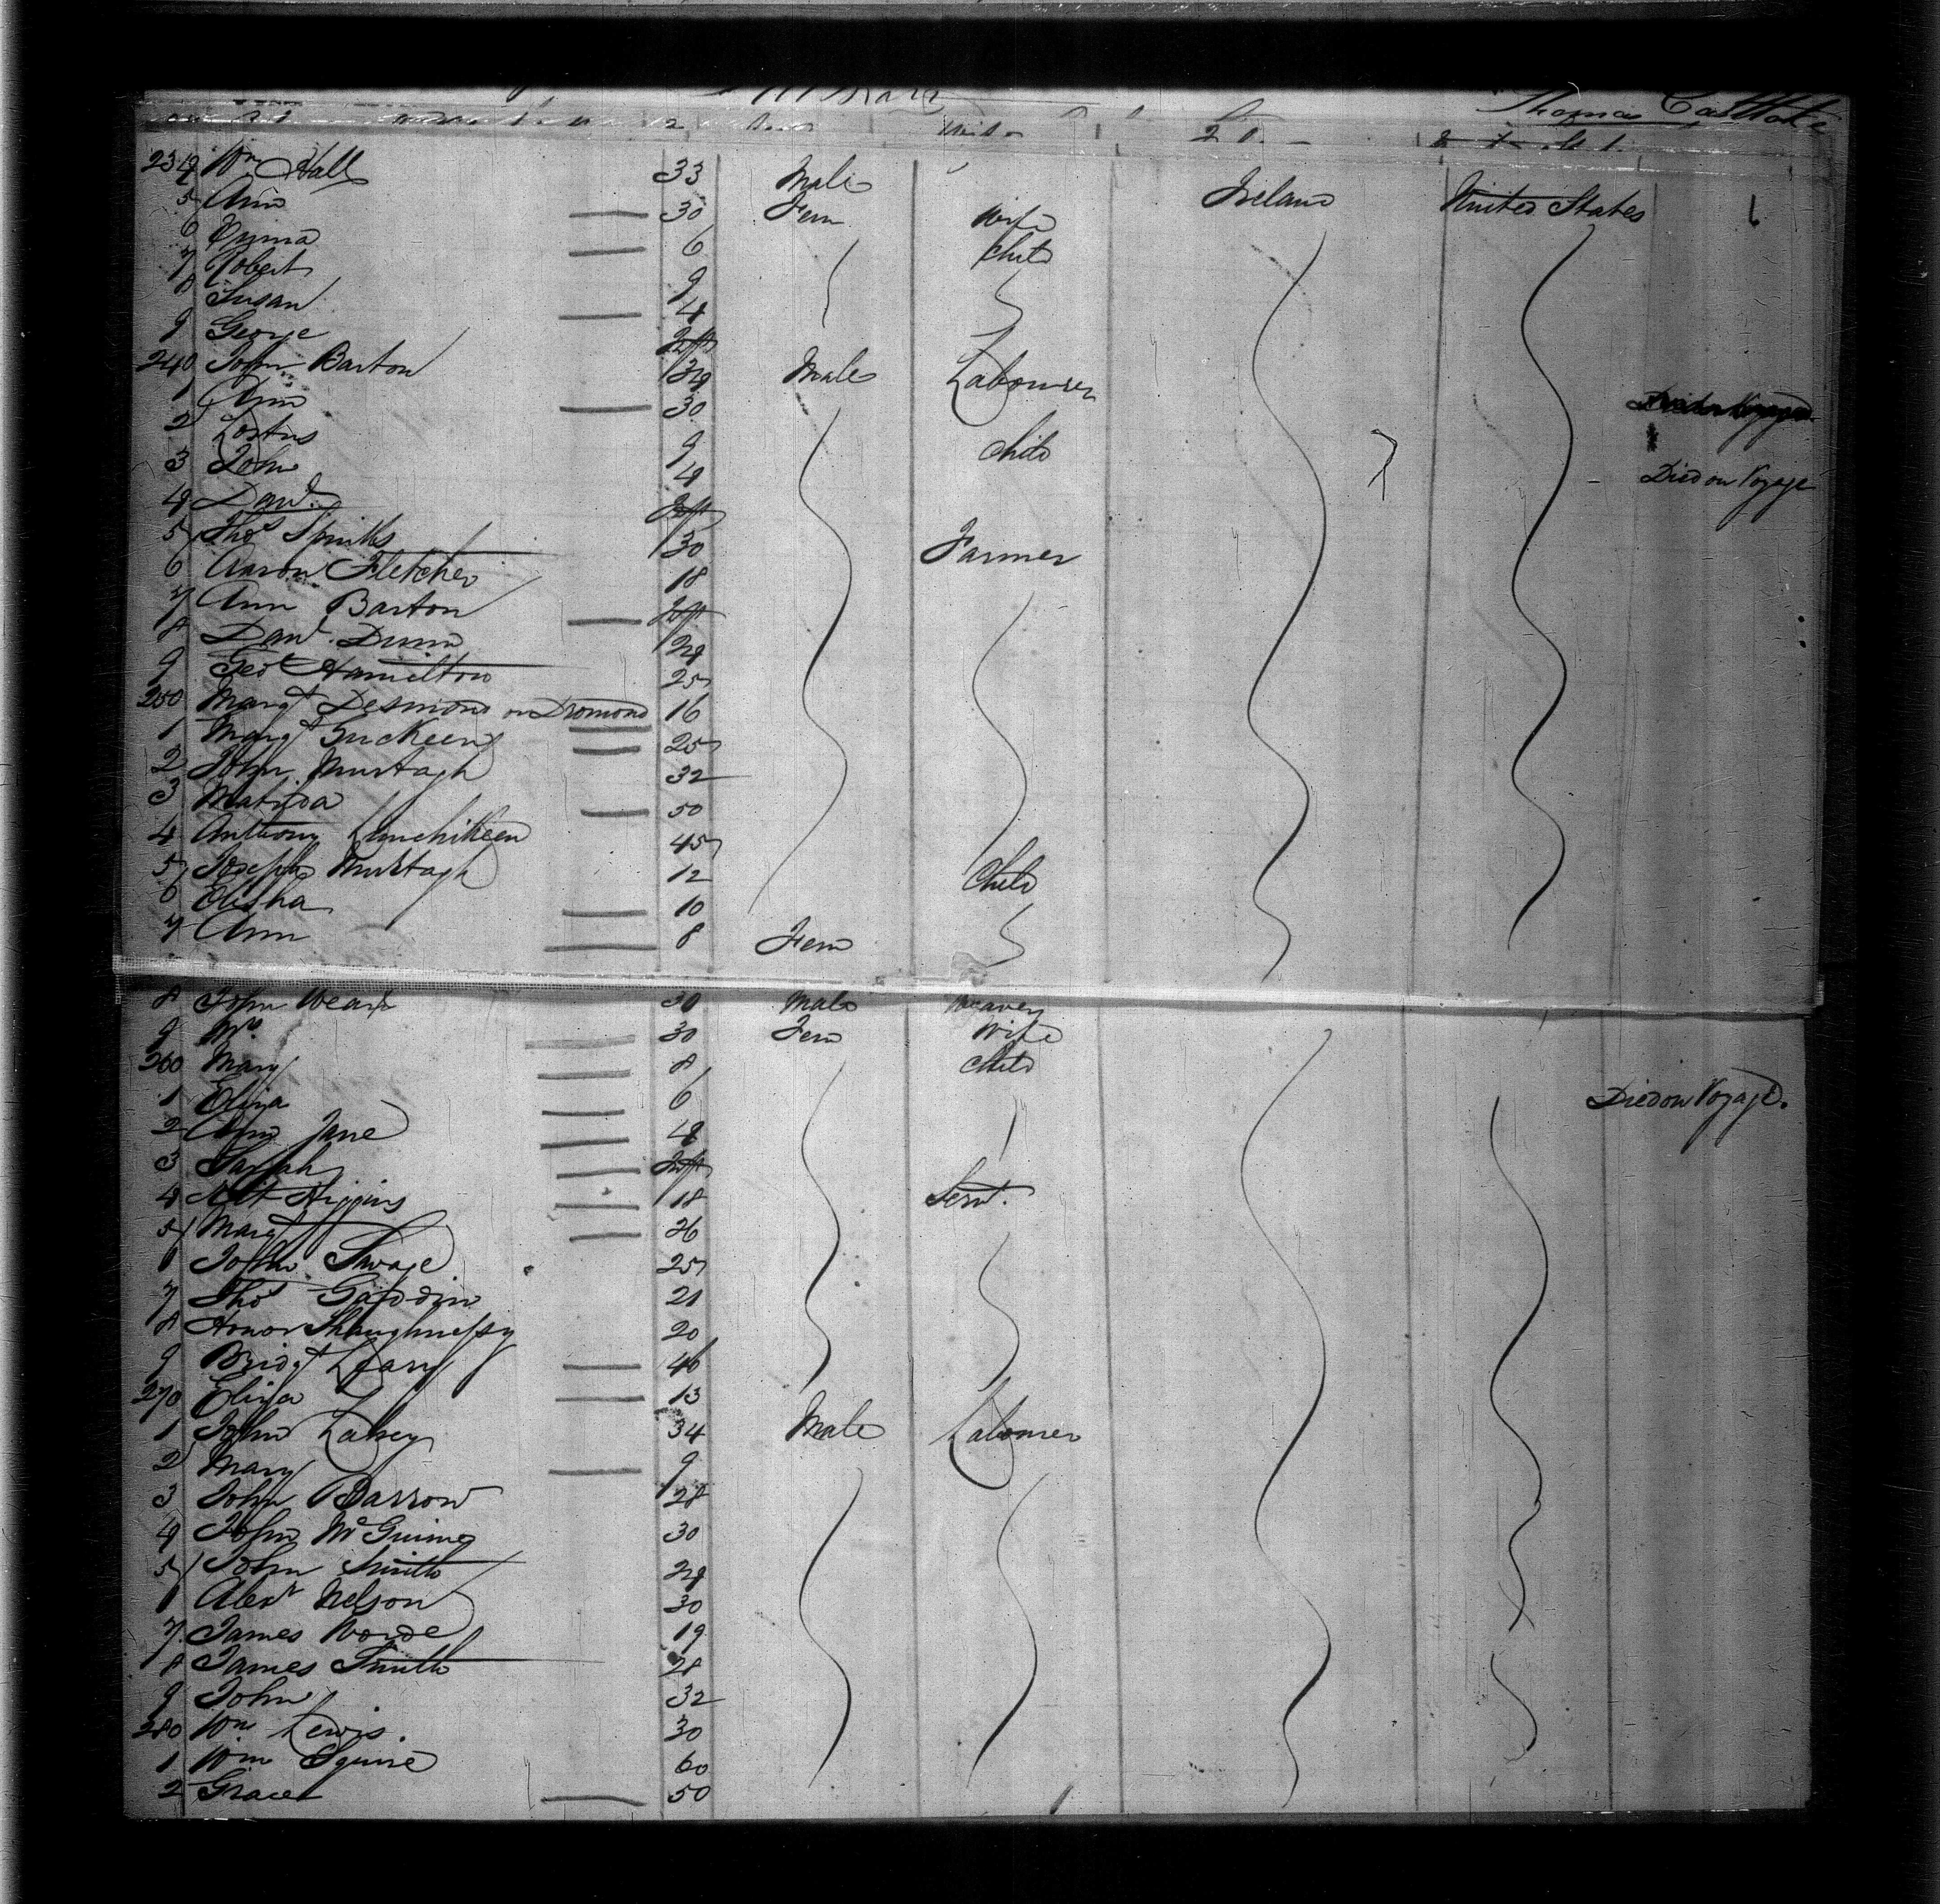 Thomas
234 Wm Hall 33 Male Ireland United States
5 Ann 30 Fem Wife
6 6 Child
7 Robert 9
8 Susan 4
9 George Inft
240 John Barton 29 Male Labourer
1 Ann 30
2 Loftus 9 Child
3 John 4 Died on Voyage
4 Davd. Inft
5 Thos Spinks 30 Farmer
6 Aaron Fletcher 18
7 Ann Barton Inft
8 Davd. Dunn 29
9 Geo Hamilton 25
250 Margt Desmond or Dromond 16
1 Margt 25
2 John Murtagh 32
3 Matilda 50
4 Anthony 45
5 Joseph Murtagh 12 Child
6 Elisha 10
7 Ann 8 Fem
8 John 30 Male Weaver
9 Mrs 30 Fem Wife
260 Mary 8 Child
1 Eliza 6 Died on Voyage.
2 Ann Jane 4
3 Sarah Inft
4 Higgins 18 Servt.
5 Margt 26
6 John Savage 25
7 Thos 21
8 Honor Shaughnessy 20
9 Bridgt Leary 46
270 Eliza 13
1 John Lahey 34 Male Labourer
2 Mary 9
3 John Barrow 28
4 John 30
5 John Smith 29
6 Alexr Nelson 30
7 James 19
8 James Smith 28
9 John 32
280 Wm Lewis. 30
1 Wm Squire 60
2 Grace 50